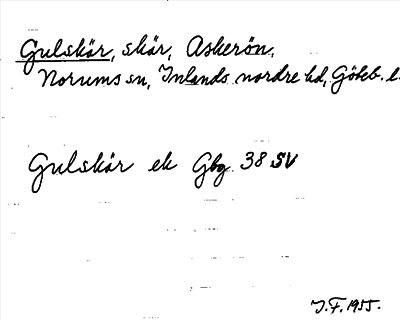 Gulskär, skär, Askerön,
Norums sn, Inlands nordre hd, Göteb. l.
Gulskär ek Gbg 38 SV
J.F. 1955.